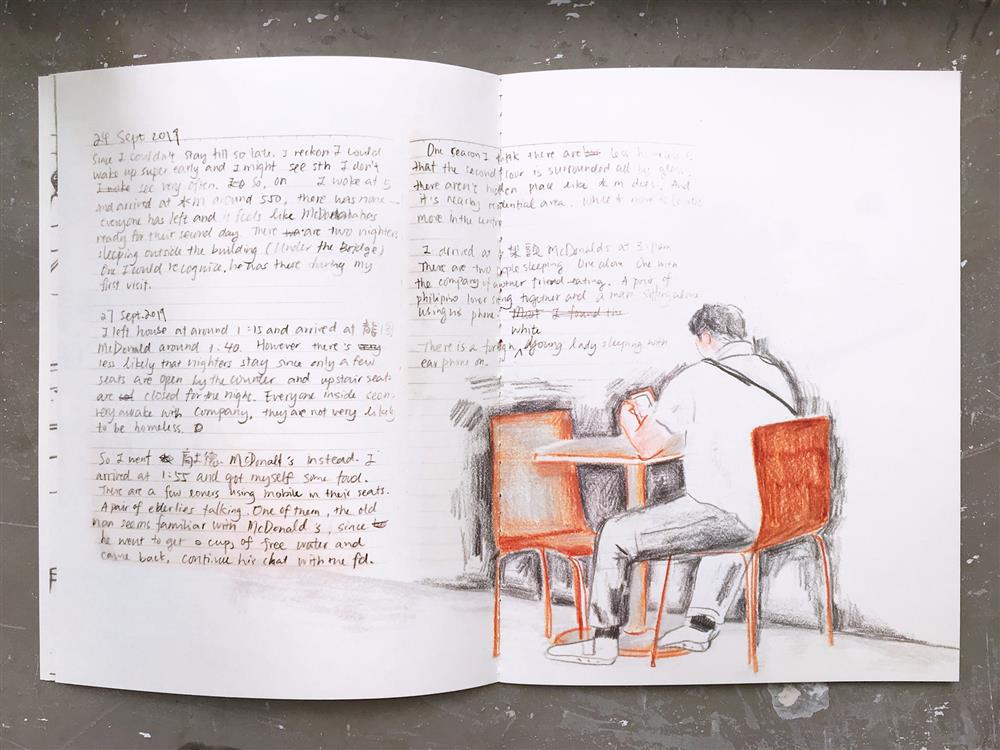 24 Sept 2019
Since I couldn't stay till so late. I reckon I could
wake up super early and I might see sth I don't
see very often. So, on I woke at 5
and arrived at around 550, there was none
everyone has left and it feels like McDonald has
ready for their second day. There are two nighters
sleeping outside the building (Under the Bridge)
One I would recognize, he was there during my
first visit.
27 Sept. 2019
I left house at around 1:15 and arrived at
McDonald around 1:40. However there's
less likely that nighters stay since only a few
seats are open by the counter and upstair seats
are closed for the night. Everyone inside seem
very awake with company, they are not very likely
to be homeless.
So I went McDonald's instead. I
arrived at 1:55 and got myself some food.
There are a few loners using mobile in their seats.
A pair of elderlies talking. One of them, the old
man seems familiar with McDonald's, since
he went to get cups of free water and
came back, continue his chat with the fd.
One reason I think there are less homeless is
that the second floor is surrounded all by glass.
there aren't hidden place like And
it's nearby residential area. While
more in the centre
I arrived at McDonalds at 3:11am
There are two people sleeping One alone One with
the company of another friend eating. A pair of
philipino lover sitting together and a man sitting alone
using his phone. Most I found the
white
There is a foreign young lady sleeping with
ear phone on.